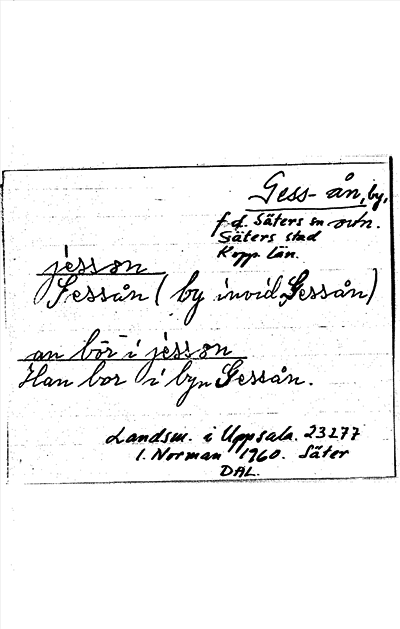 Gess-ån, by,
f.d. Säters sn ortn.
Säters stad
Kopp. län.
jesson
Gessån (by invid Gessån)
an bor i jesson
Han bor i byn Gessån.
Landsm. i Uppsala. 23277
I. Norman 1960. Säter
DAL.